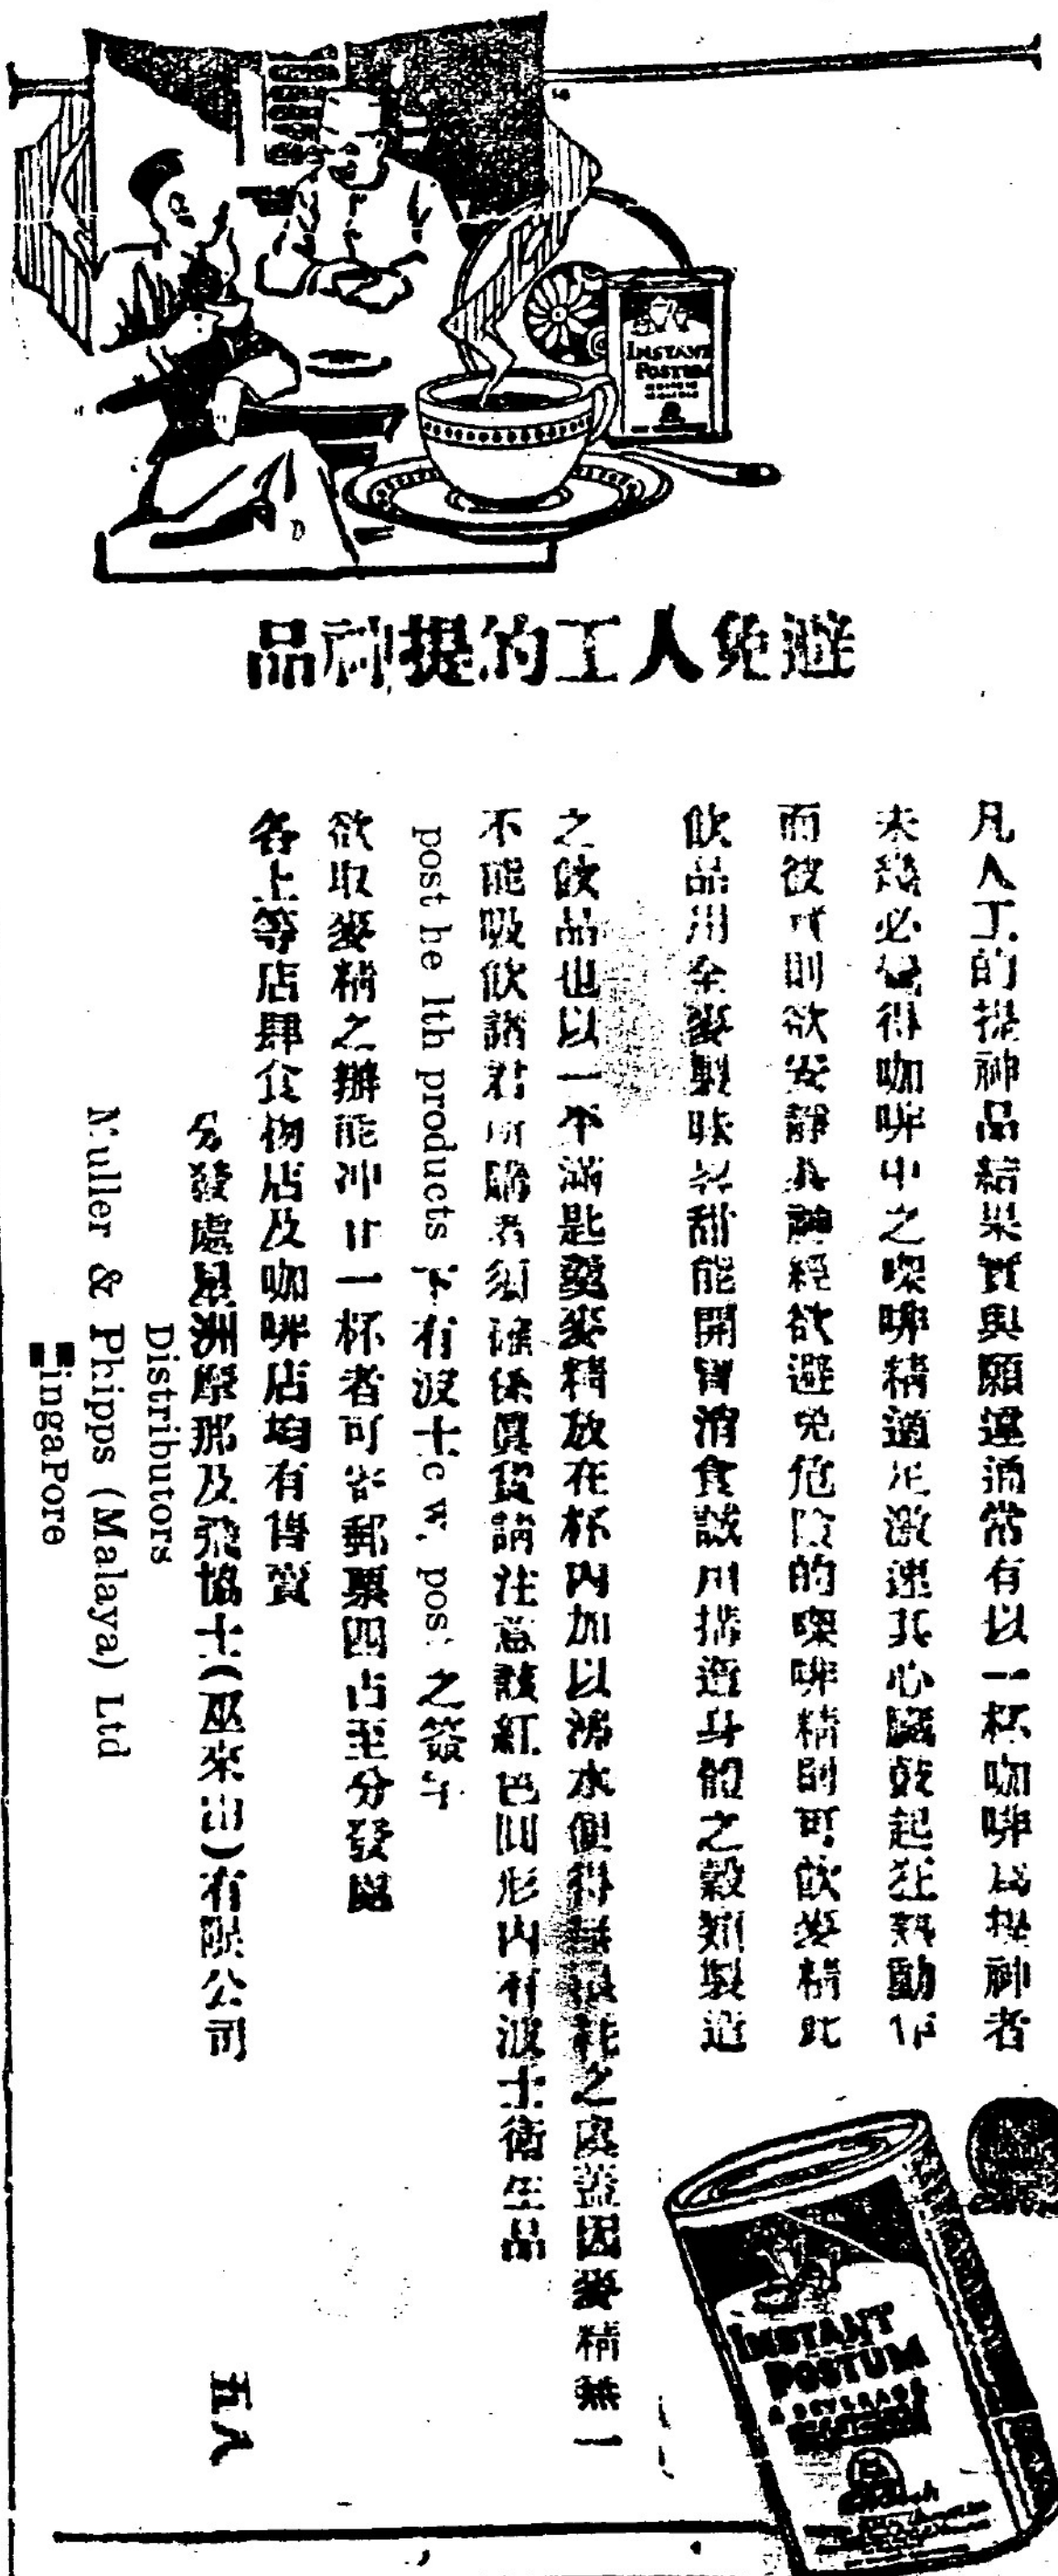 INSTANT
POSTUM
避免人工的提神品
凡人工的提神品結果實與願違通常有以一杯咖啡爲提神者
未幾必覺得咖啡中之㗎啡精適足激速其心臟鼓起狂熱動作
而彼 則欲安靜其神經欲避免危險的㗎啡精則可飲麥精此
飲品用全麥製味 甜能開胃消食誠 搆造身體之穀類製造
之飲品也以一平滿匙 麥精放在杯內加以沸水便得 之 蓋因麥精無一
不能吸飲諸君所購者須確係眞貨請注意該紅色圓形內有波士衛生品
post he lth products 下有波士c w. post 之簽字
欲取麥精之辦能冲廿一杯者可寄郵票四占至分發處
各上等店肆食物店及咖啡店均有售賣
分發處星洲摩那及飛協士(巫來由)有限公司
Distributors
Muller & Phipps (Malaya) Ltd
ingaPore
五八
INSTANT
POSTUM
A BEVERAGE